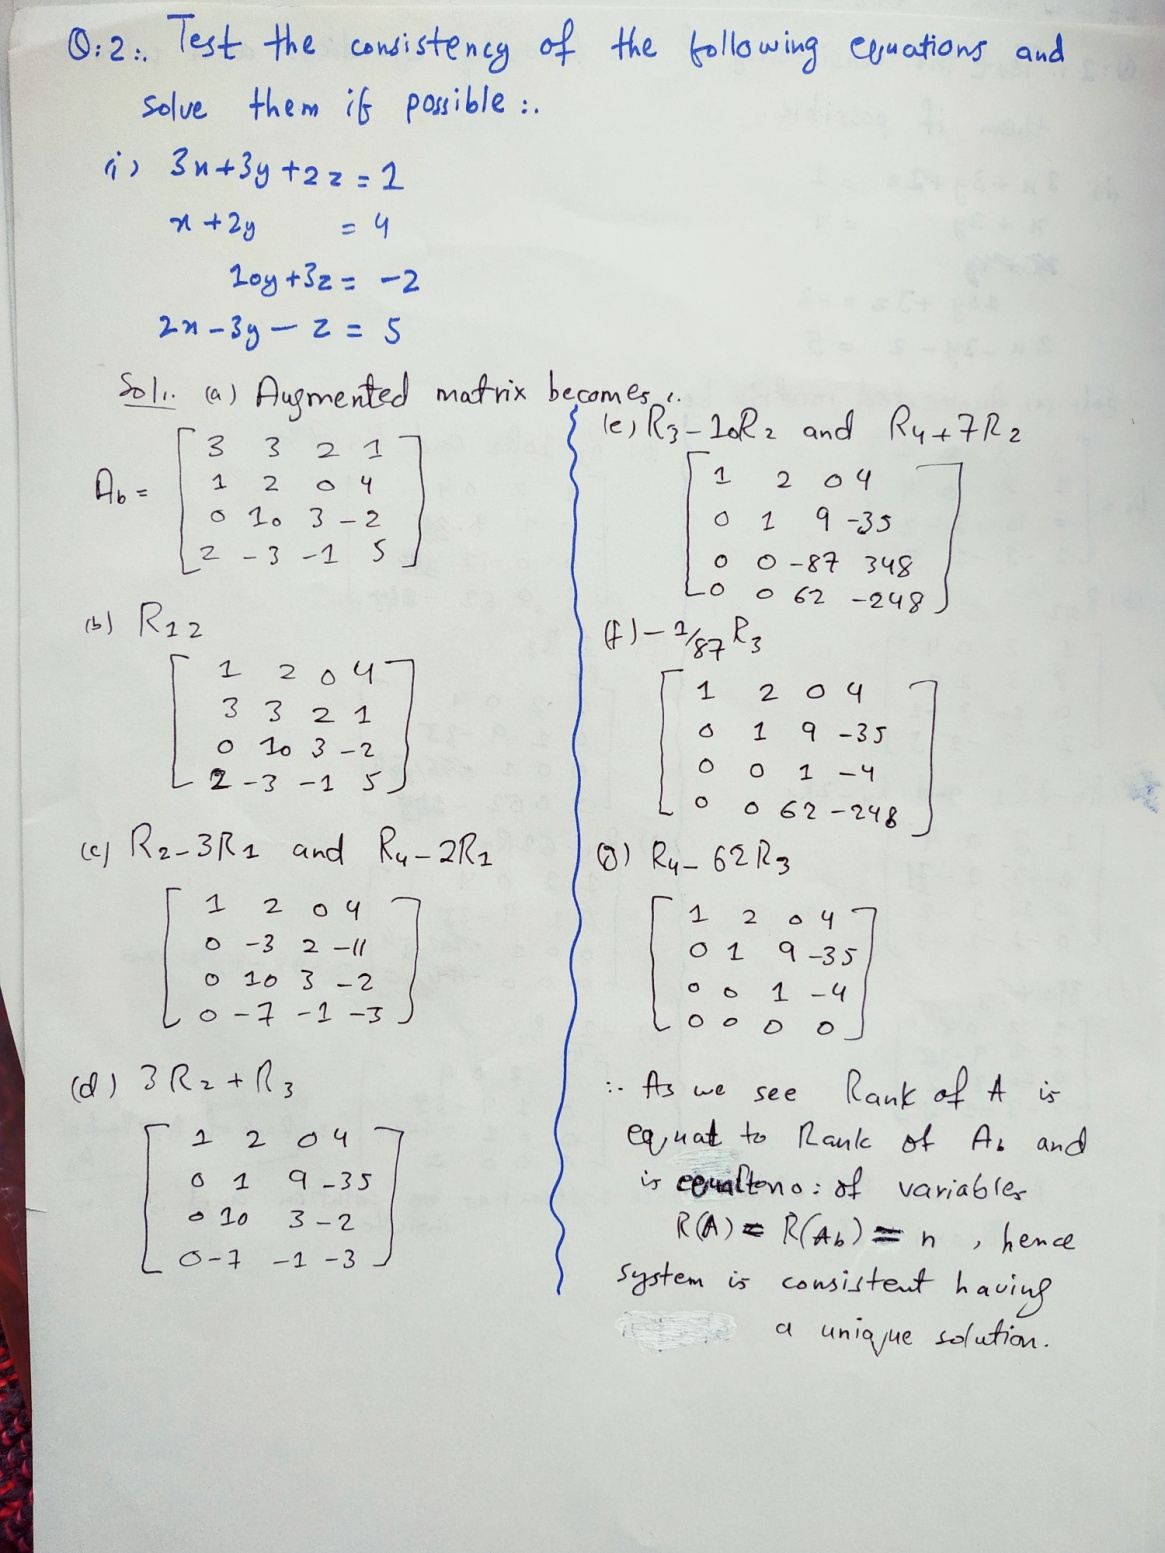 Q:2:. Test the consistency of the following equations and
solve them if possible :.
(i) 3x+3y+2z = 1
x+2y = 4
10y+3z = -2
2x-3y-z = 5
Sol:. (a) Augmented matrix becomes:.
Ab =
3 3 2 1
1 2 0 4
0 10 3 -2
2 -3 -1 5
(b) R12
1 2 0 4
3 3 2 1
0 10 3 -2
2 -3 -1 5
(c) R2-3R1 and R4-2R1
1 2 0 4
0 -3 2 -11
0 10 3 -2
0 -7 -1 -3
(d) 3R2+R3
1 2 0 4
0 1 9 -35
0 10 3 -2
0 -7 -1 -3
(e) R3-10R2 and R4+7R2
1 2 0 4
0 1 9 -35
0 0 -87 348
0 0 62 -248
(f) -1/87 R3
1 2 0 4
0 1 9 -35
0 0 1 -4
0 0 62 -248
(g) R4-62R3
1 2 0 4
0 1 9 -35
0 0 1 -4
0 0 0 0
:. As we see Rank of A is
equal to Rank of Ab and
is equal to no: of variables
R(A) = R(Ab) = n , hence
system is consistent having
a unique solution.